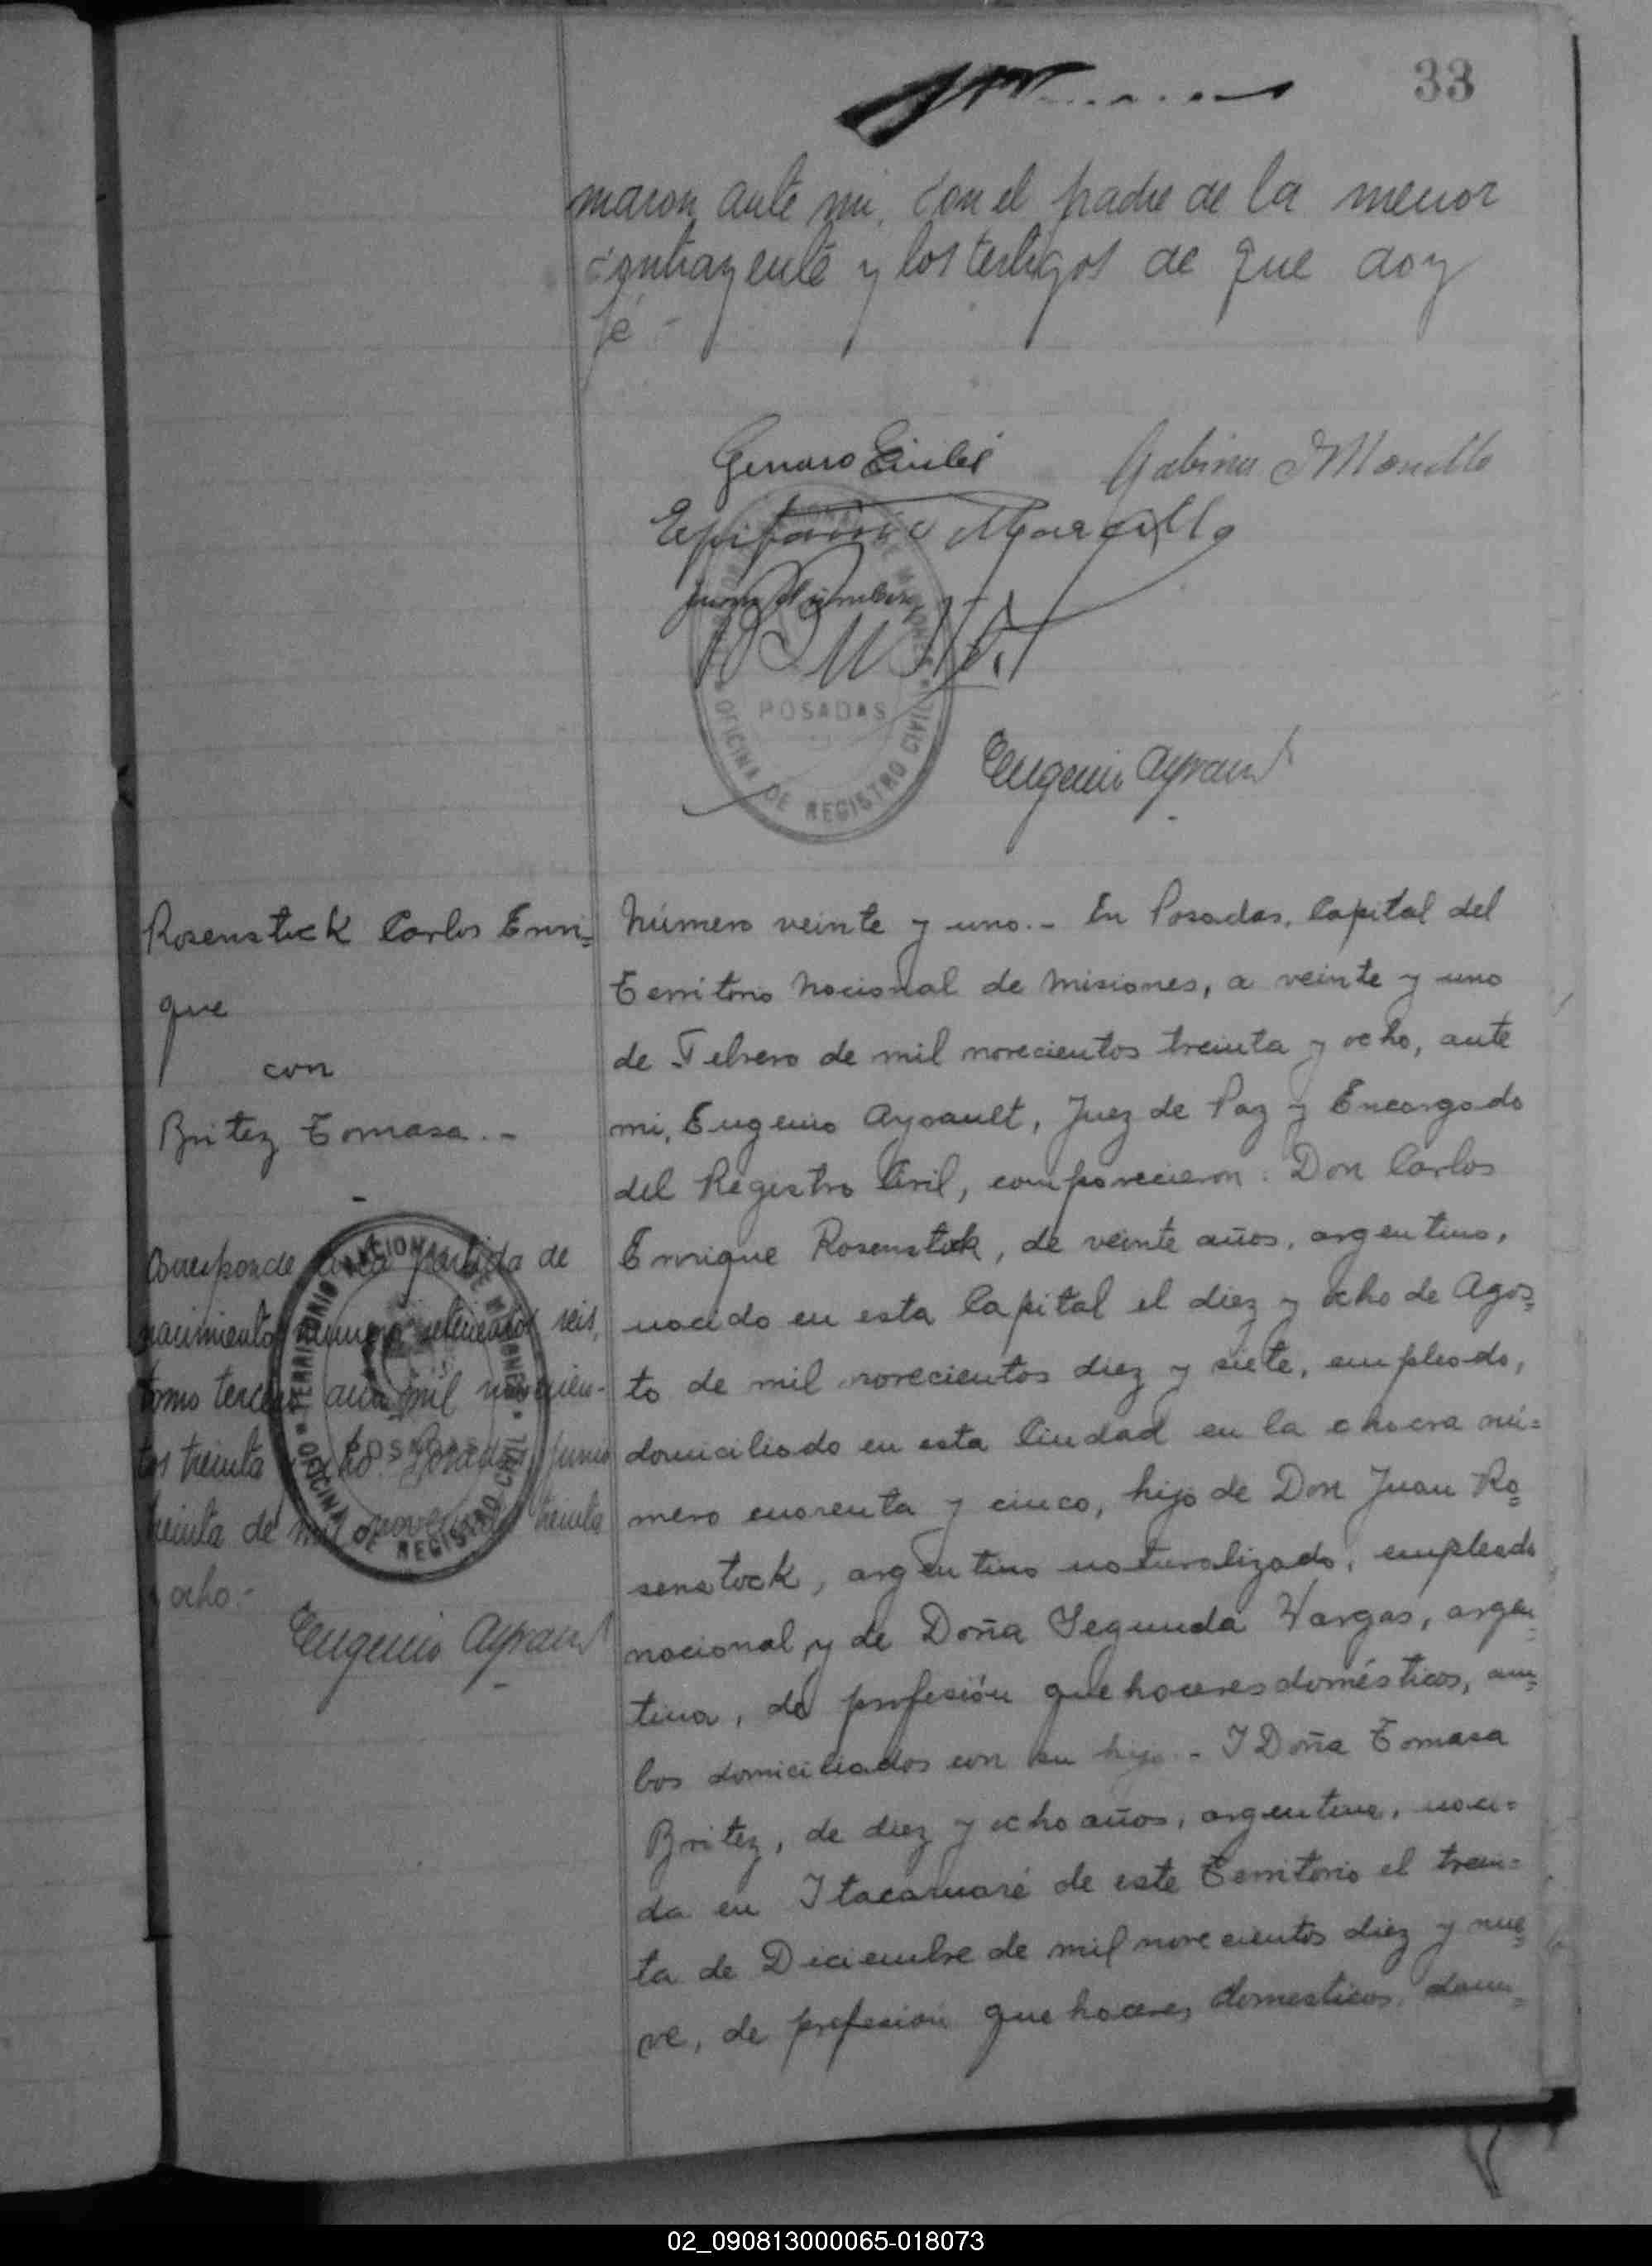 33
maron ante mi, con el padre de la menor
contrayente y los testigos de que doy
fé -
Genaro
Gabina Morillo
Epifanio
Juan
TERRITORIO NACIONAL DE MISIONES
POSADAS
OFICINA DE REGISTRO CIVIL
Eugenio Ayrault
Rosenstock Carlos Enri=
que
con
Britez Tomasa. -
Corresponde a la partida de
nacimiento número setecientos seis,
tomo tercero año mil novecien-
tos treinta y ocho. Posadas, junio
treinta de mil novecientos treinta
y ocho.-
Eugenio Ayrault
TERRITORIO NACIONAL DE MISIONES
POSADAS
OFICINA DE REGISTRO CIVIL
Número veinte y uno.- En Posadas, Capital del
Territorio Nacional de Misiones, a veinte y uno
de Febrero de mil novecientos treinta y ocho, ante
mi, Eugenio Ayrault, Juez de Paz y Encargado
del Registro Civil, comparecieron: Don Carlos
Enrique Rosenstock, de veinte años, argentino,
nacido en esta Capital el diez y ocho de Agos=
to de mil novecientos diez y siete, empleado,
domiciliado en esta Ciudad en la chacra nú=
mero cuarenta y cinco, hijo de Don Juan Ro=
senstock, argentino naturalizado, empleado
nacional y de Doña Segunda Vargas, argen=
tina, de profesión quehaceres domésticos, am=
bos domiciliados con su hijo.- Y Doña Tomasa
Britez, de diez y ocho años, argentina, naci=
da en Itacaruaré de este Territorio el trein=
ta de Diciembre de mil novecientos diez y nue=
ve, de profesión quehaceres domesticos, domi=
02_090813000065-018073